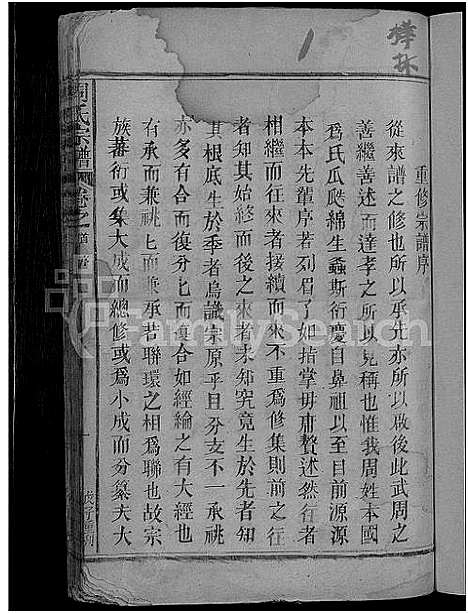 樟林
重修宗譜序
從來譜之修也所以承先亦所以啟後此武周之
善繼善述而達孝之所以見稱也惟我周姓本國
爲氏瓜瓞綿生螽斯衍慶自鼻祖以至目前源源
本本先輩序著列眉了如指掌毋庸贅述然行者
相繼而往來者接續而來不重爲修集則前之往
者知其始終而後之來者未知究竟生於先者知
其根底生於季者烏識宗原乎且分支不一承祧
亦多有合而復分匕而復合如經綸之有大經也
有承而兼祧匕而兼承若聯環之相爲聯也故宗
族蕃衍或集大成而總修或爲小成而分纂夫大
周氏宗譜
卷之首
首
戊子重刊
FamilySearch